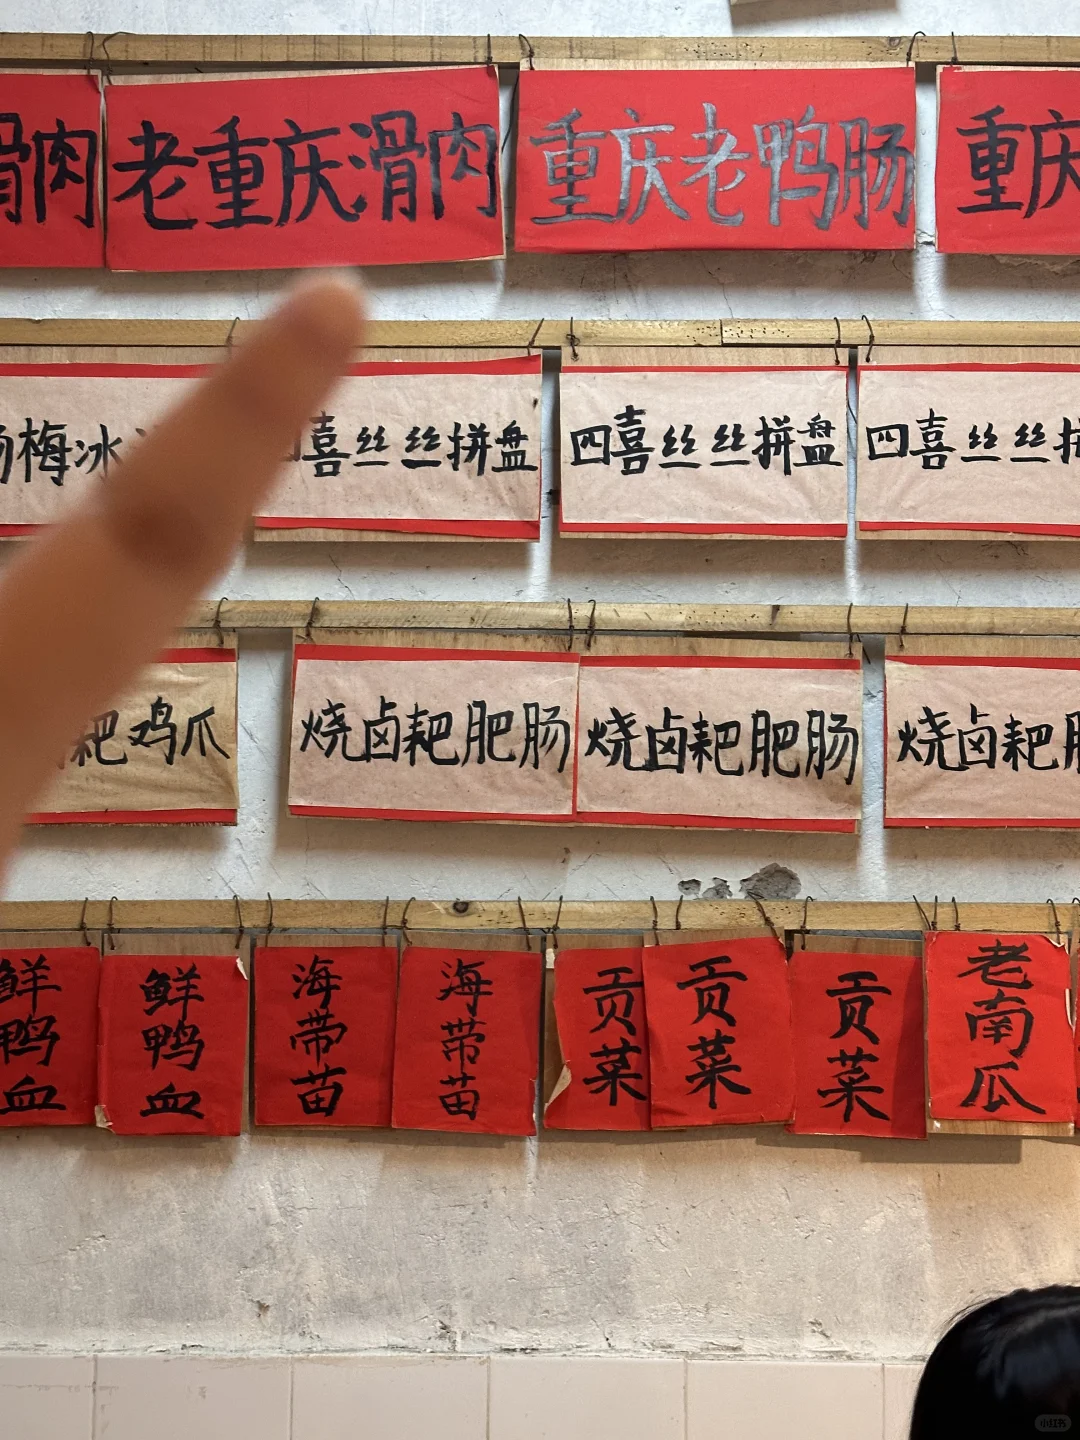 滑肉
老重庆滑肉
重庆老鸭肠
重庆
杨梅冰
喜丝丝拼盘
四喜丝丝拼盘
四喜丝丝拼
耙鸡爪
烧卤耙肥肠
烧卤耙肥肠
烧卤耙肥
鲜鸭血
鲜鸭血
海带苗
海带苗
贡菜
贡菜
贡菜
老南瓜
小红书